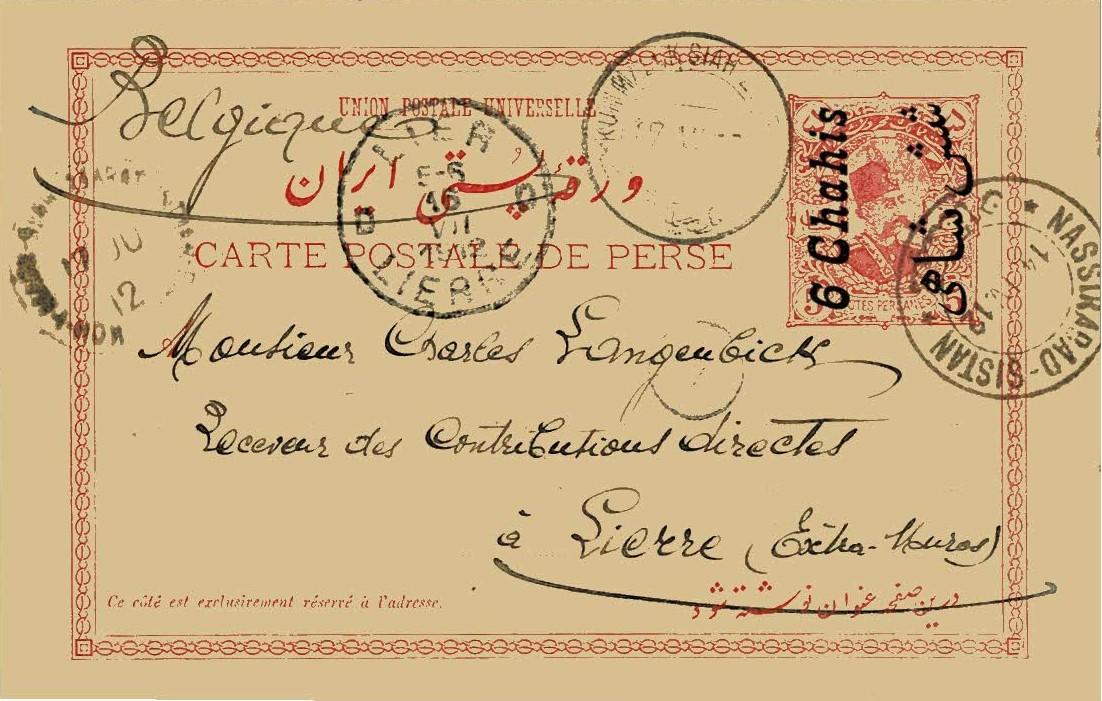 Belgique
UNION POSTALE UNIVERSELLE
ورقه پستی ایران
CARTE POSTALE DE PERSE
6 Chahis
شش شاهی
5
LIER
5-6
16
VII
1912
LIERRE
D D
KUH MALEK SIAH
NASSIRABAD-SISTAN
14
12
JU
12
Monsieur Charles Langenbick
Receveur des Contributions directes
à Lierre (Extra-Muros)
Ce côté est exclusivement réservé à l'adresse.
درین صفحه عنوان نوشته شود